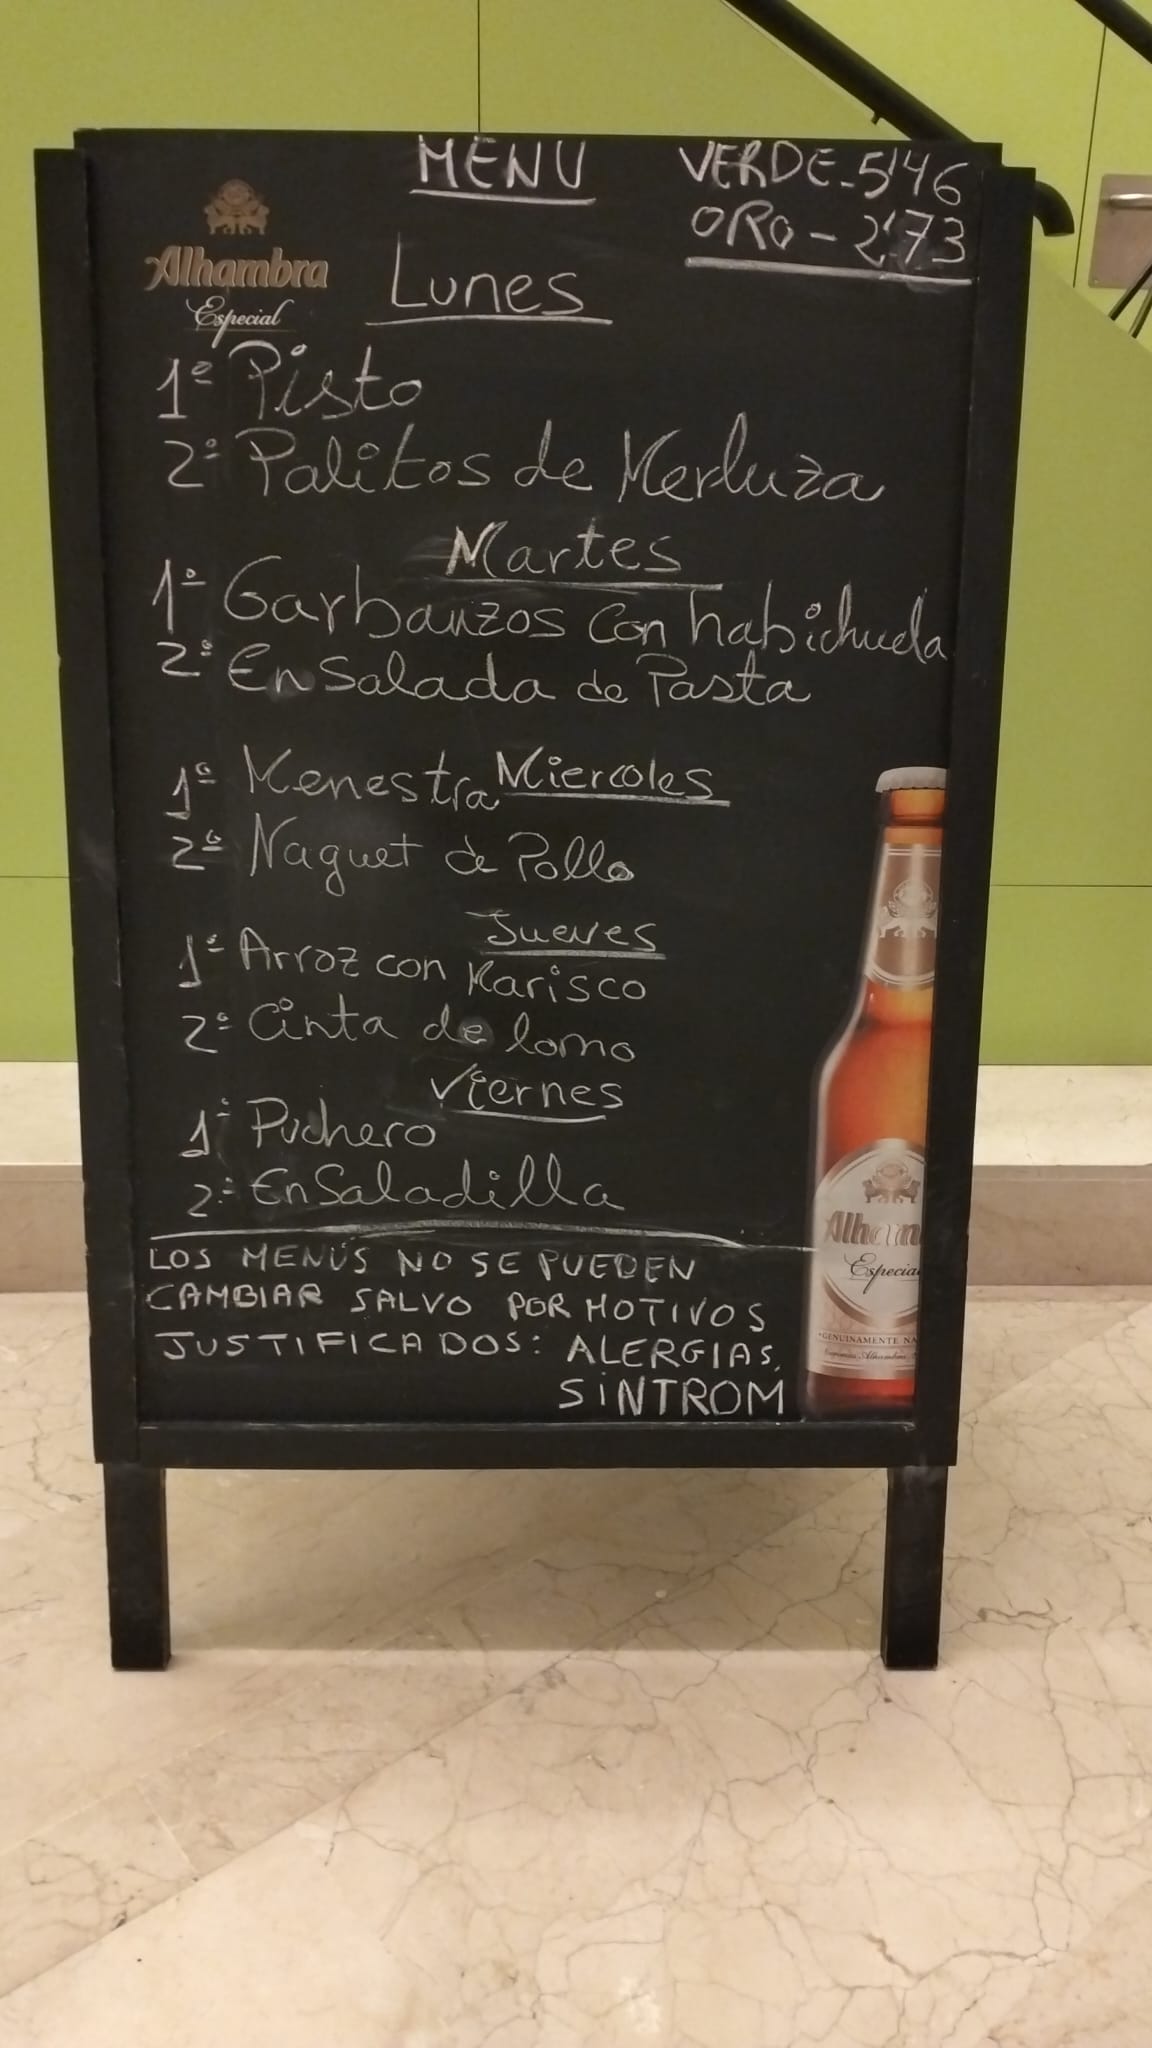 MENU
VERDE-5'46
ORO-2'73
Alhambra
Especial
Lunes
1º Pisto
2º Palitos de Merluza
Martes
1º Garbanzos con habichuela
2º EnSalada de Pasta
Miercoles
1º Menestra
2º Naguet de Pollo
Jueves
1º Arroz con Marisco
2º Cinta de lomo
Viernes
1º Puchero
2º EnSaladilla
LOS MENÚS NO SE PUEDEN
CAMBIAR SALVO POR MOTIVOS
JUSTIFICADOS: ALERGIAS,
SiNTROM
Alham
Especial
GENUINAMENTE NA